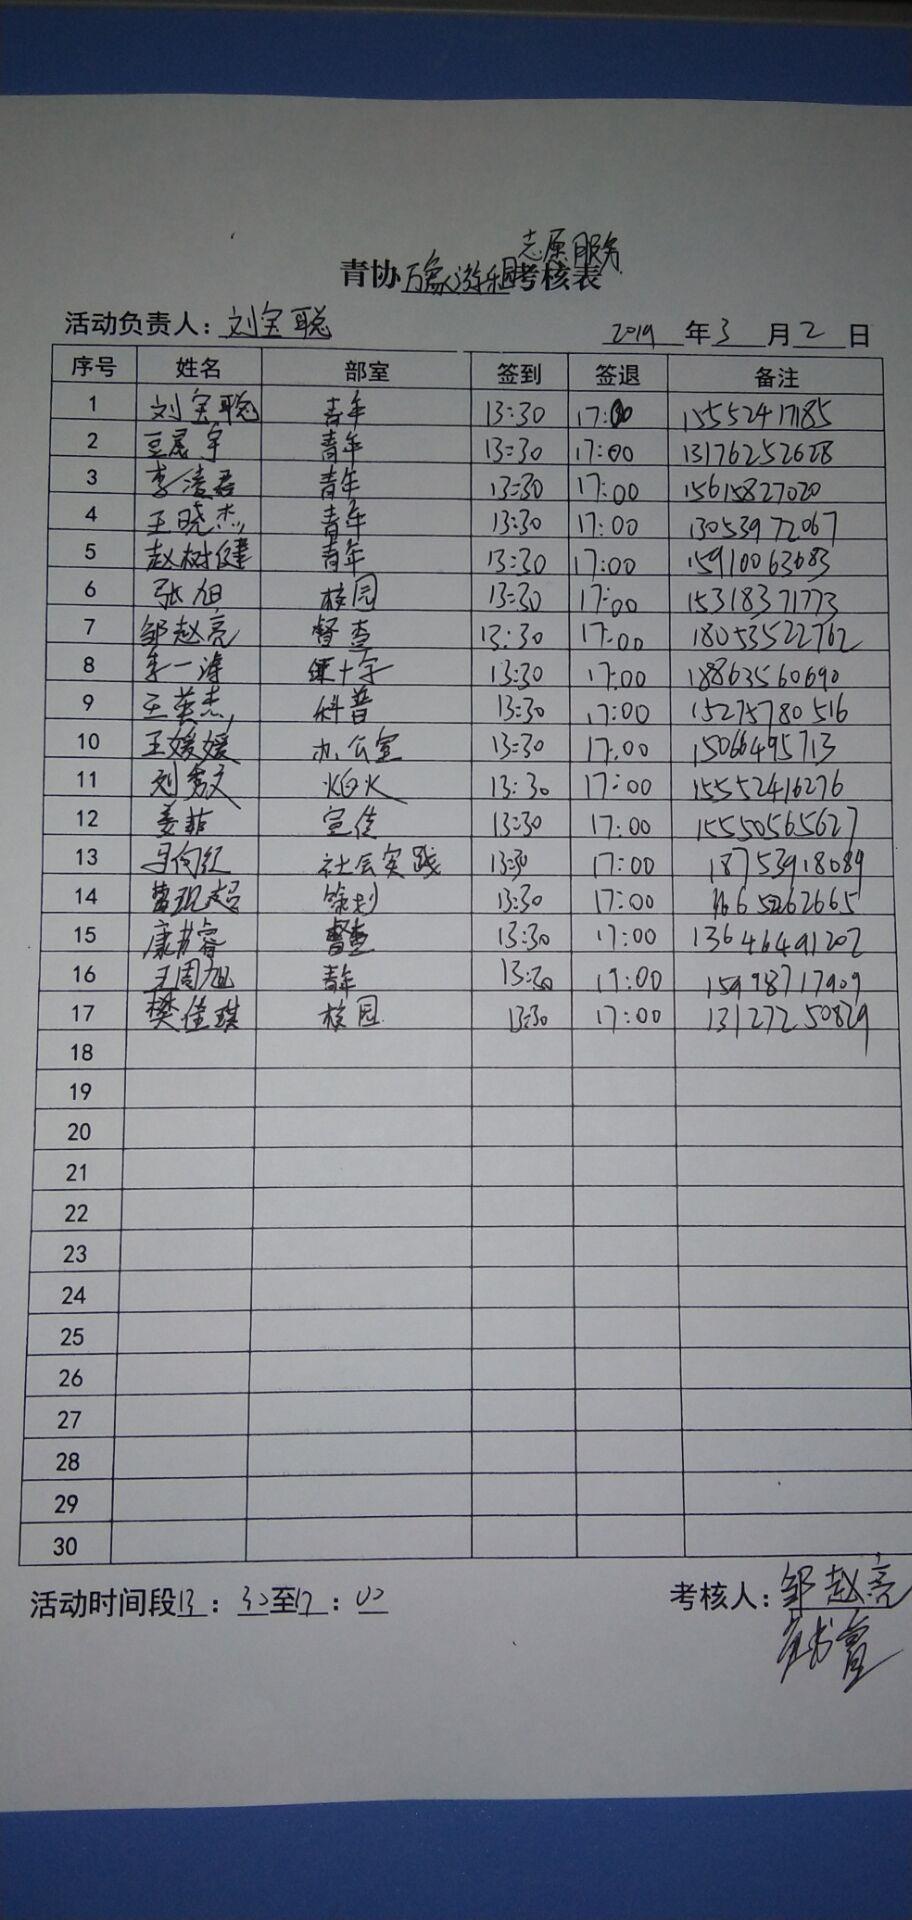 志愿服务
青协万象游乐园考核表
活动负责人：刘宝聪 2019 年 3 月 2 日
序号 姓名 部室 签到 签退 备注
1 刘宝聪 青年 13:30 17:00 15552417185
2 青年 13:30 17:00 13176252628
3 李凌君 青年 13:30 17:00 15615827020
4 王晓杰 青年 13:30 17:00 13053972067
5 赵树健 青年 13:30 17:00 15910063683
6 张旭 校园 13:30 17:00 15318371773
7 邹赵亮 督查 13:30 17:00 18053522762
8 李一涛 红十字 13:30 17:00 18863560690
9 王英杰 科普 13:30 17:00 15275780516
10 王媛媛 办公室 13:30 17:00 15066495713
11 刘秀文 13:30 17:00 15552416276
12 姜菲 宣传 13:30 17:00 15550565627
13 马向红 社会实践 13:30 17:00 18753918089
14 策划 13:30 17:00
15 督查 13:30 17:00 13646491202
16 王周旭 青年 13:30 17:00 15998717909
17 樊佳琪 校园 13:30 17:00 13127250829
18
19
20
21
22
23
24
25
26
27
28
29
30
活动时间段 13：30至17：00 考核人：邹赵亮